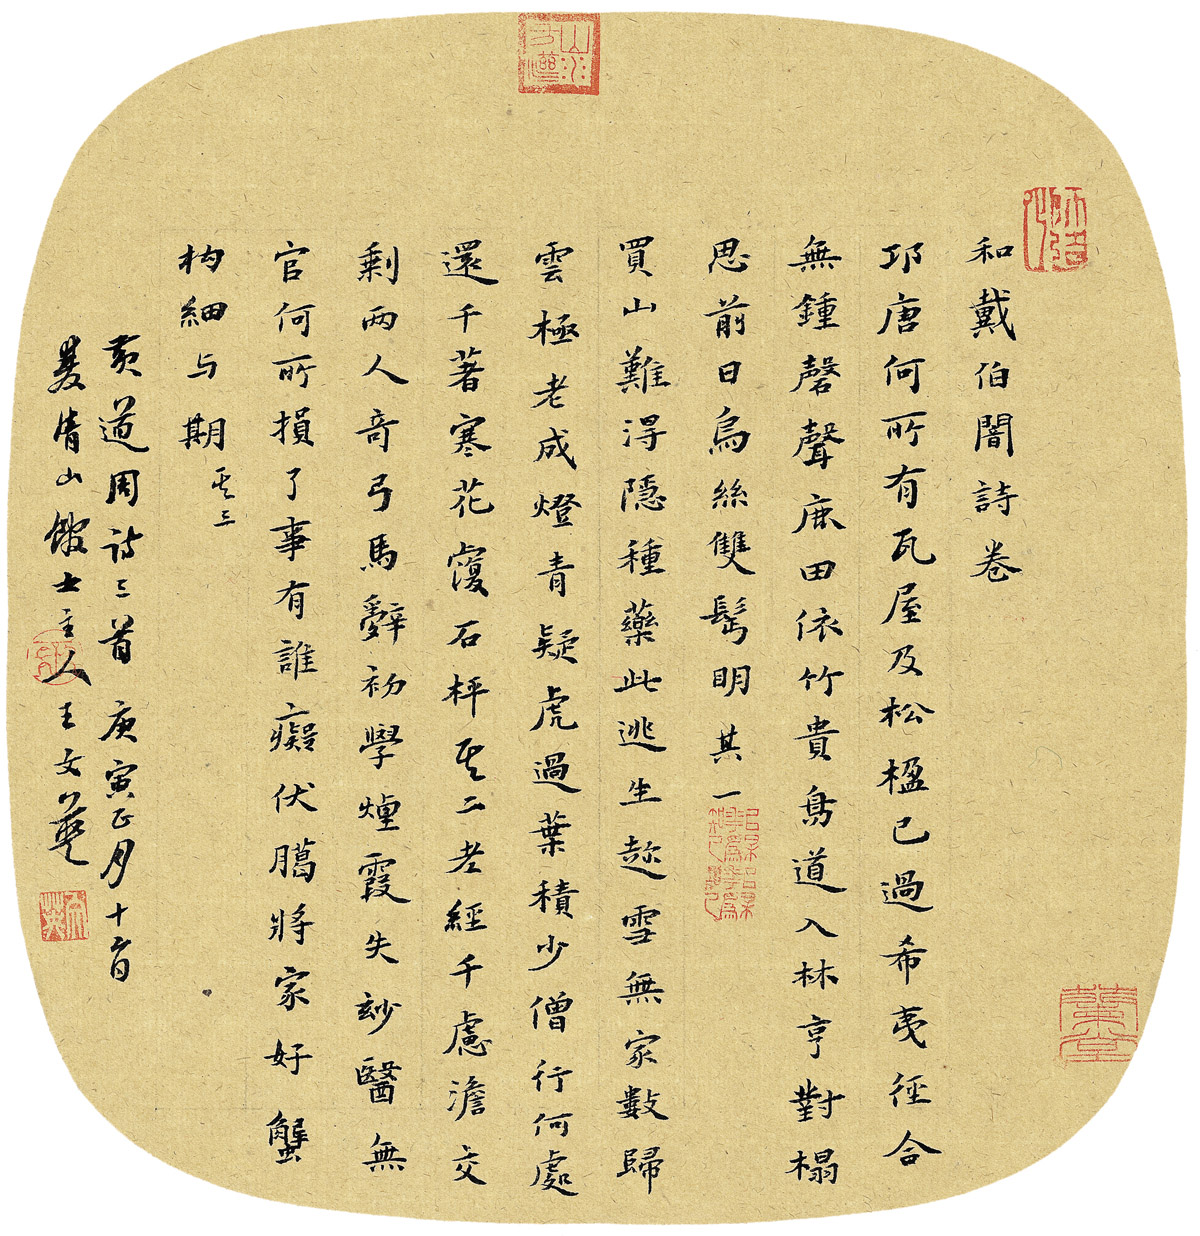 和戴伯闇詩卷
邛唐何所有瓦屋及松楹已過希夷徑合
無鍾磬聲鹿田依竹貴鳥道入林亨對榻
思前日烏絲雙髩明其一
買山難淂隱種藥此逃生趂雪無家數歸
雲極老成燈青疑虎過葉積少僧行何處
還千著寒花覆石枰其二老經千慮澹交
剩兩人奇弓馬辭初學煙霞失玅醫無
官何所損了事有誰癡伏臈將家好蟹
构細与期其三
黃道周詩三首庚寅正月十六日
菱倩山館主人王文英